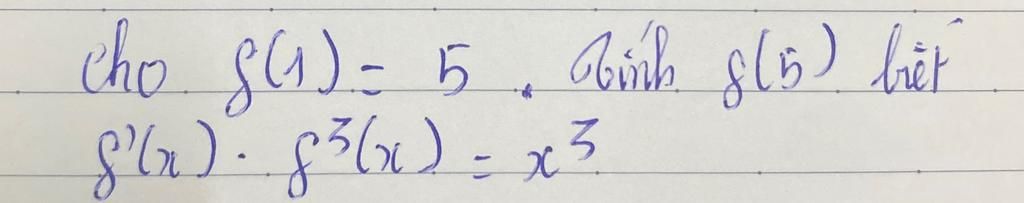 cho f(1) = 5. Tính f(5) biết
f'(x) . f³(x) = x³